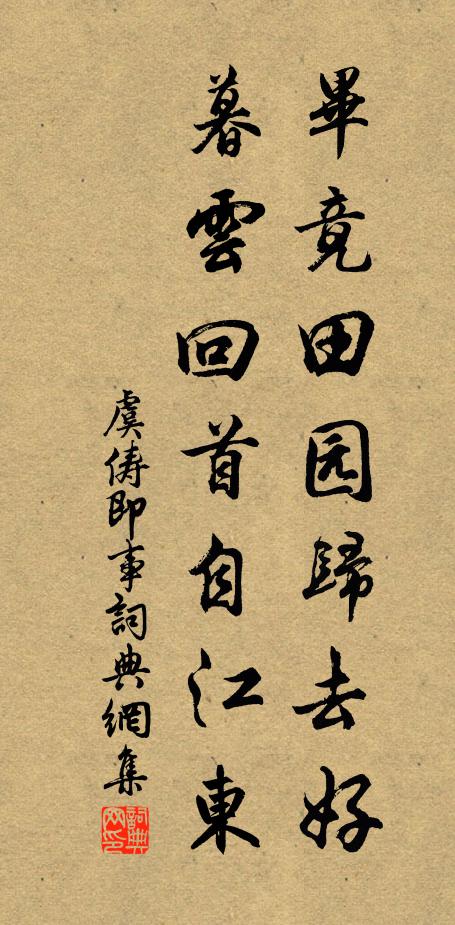 畢竟田园歸去好
暮雲回首自江東
虞儔即事詞典網集
詞典網印